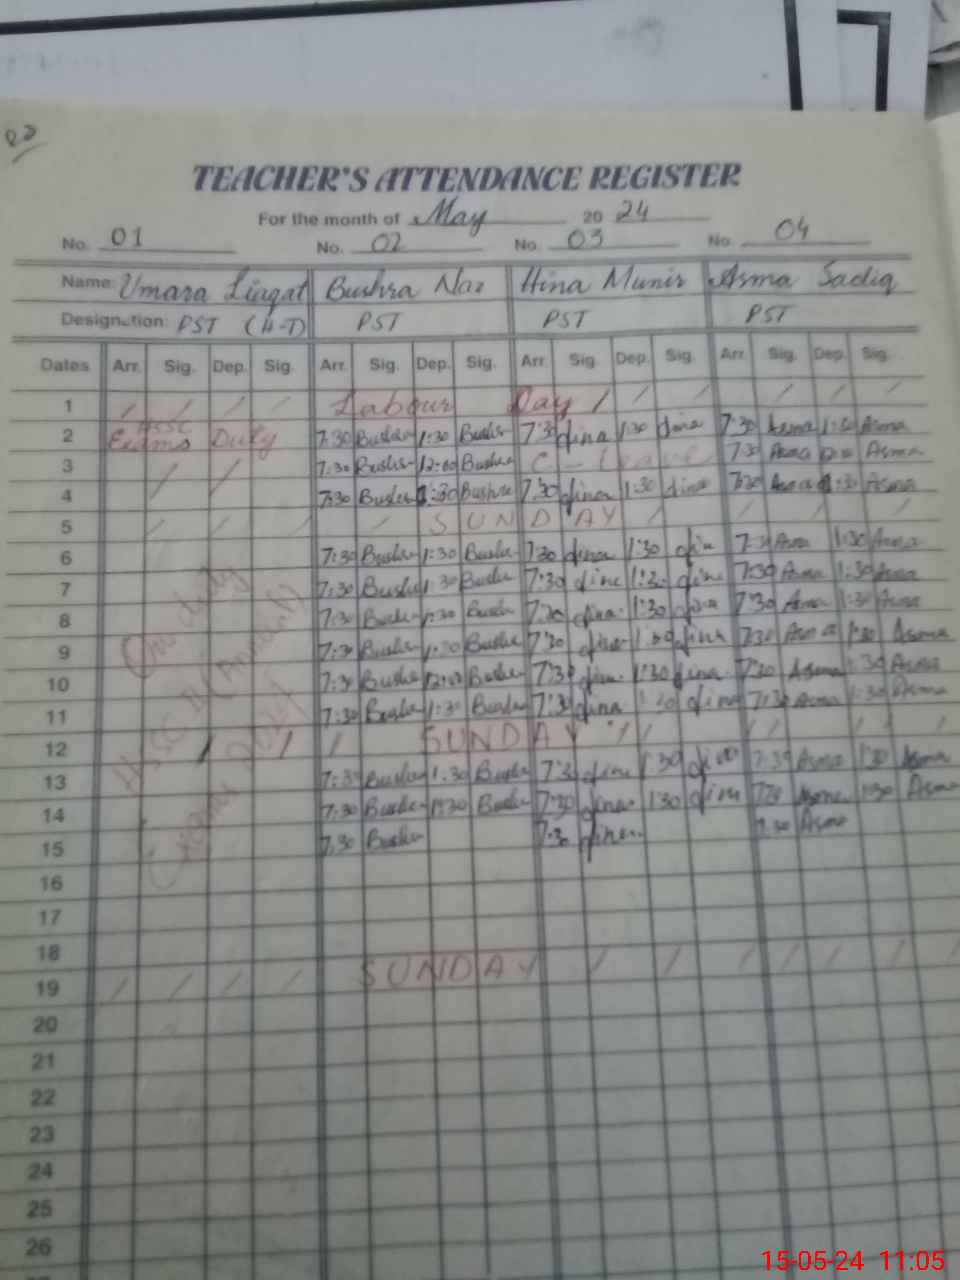 TEACHER'S ATTENDANCE REGISTER
For the month of May 2024
No. 01 No. 02 No. 03 No. 04
Name: Umara Liaqat Bushra Naz Hina Munir Asma Sadiq
Designation: PST (H-T) PST PST PST
Dates Arr. Sig. Dep. Sig. Arr. Sig. Dep. Sig. Arr. Sig. Dep. Sig. Arr. Sig. Dep. Sig.
1 / / / / Labour Day / / / / / / /
HSSC
2 Exams Duty 7:30 Bushra 1:30 Bushra 7:30 Hina 1:30 Hina 7:30 Asma 1:30 Asma
3 7:30 Bushra 12:00 Bushra C - Leave 7:30 Asma Asma
4 / / 7:30 Bushra 1:30 Bushra 7:30 Hina 1:30 Hina 7:30 Asma 1:30 Asma
5 / / / / / SUNDAY / / / / /
6 7:30 Bushra 1:30 Bushra 7:30 Hina 1:30 Hina 7:30 Asma 1:30 Asma
7 7:30 Bushra 1:30 Bushra 7:30 Hina 1:30 Hina 7:30 Asma 1:30 Asma
8 7:30 Bushra 1:30 Bushra 7:30 Hina 1:30 Hina 7:30 Asma 1:30 Asma
9 7:30 Bushra 1:30 Bushra 7:30 Hina 1:30 Hina 7:30 Asma 1:30 Asma
10 7:30 Bushra 12:00 Bushra 7:30 Hina 1:30 Hina 7:30 Asma 1:30 Asma
11 7:30 Bushra 1:30 Bushra 7:30 Hina 1:30 Hina 7:30 Asma 1:30 Asma
12 / / / SUNDAY / / / / / / /
13 7:30 Bushra 1:30 Bushra 7:30 Hina 1:30 Hina 7:30 Asma 1:30 Asma
14 7:30 Bushra 1:30 Bushra 7:30 Hina 1:30 Hina 7:30 Asma 1:30 Asma
15 7:30 Bushra 7:30 Hina 7:30 Asma
On duty
HSSC (Annual)
Exams 2024
16
17
18
19 / / / / SUNDAY / / / / / / /
20
21
22
23
24
25
26
15-05-24 11:05